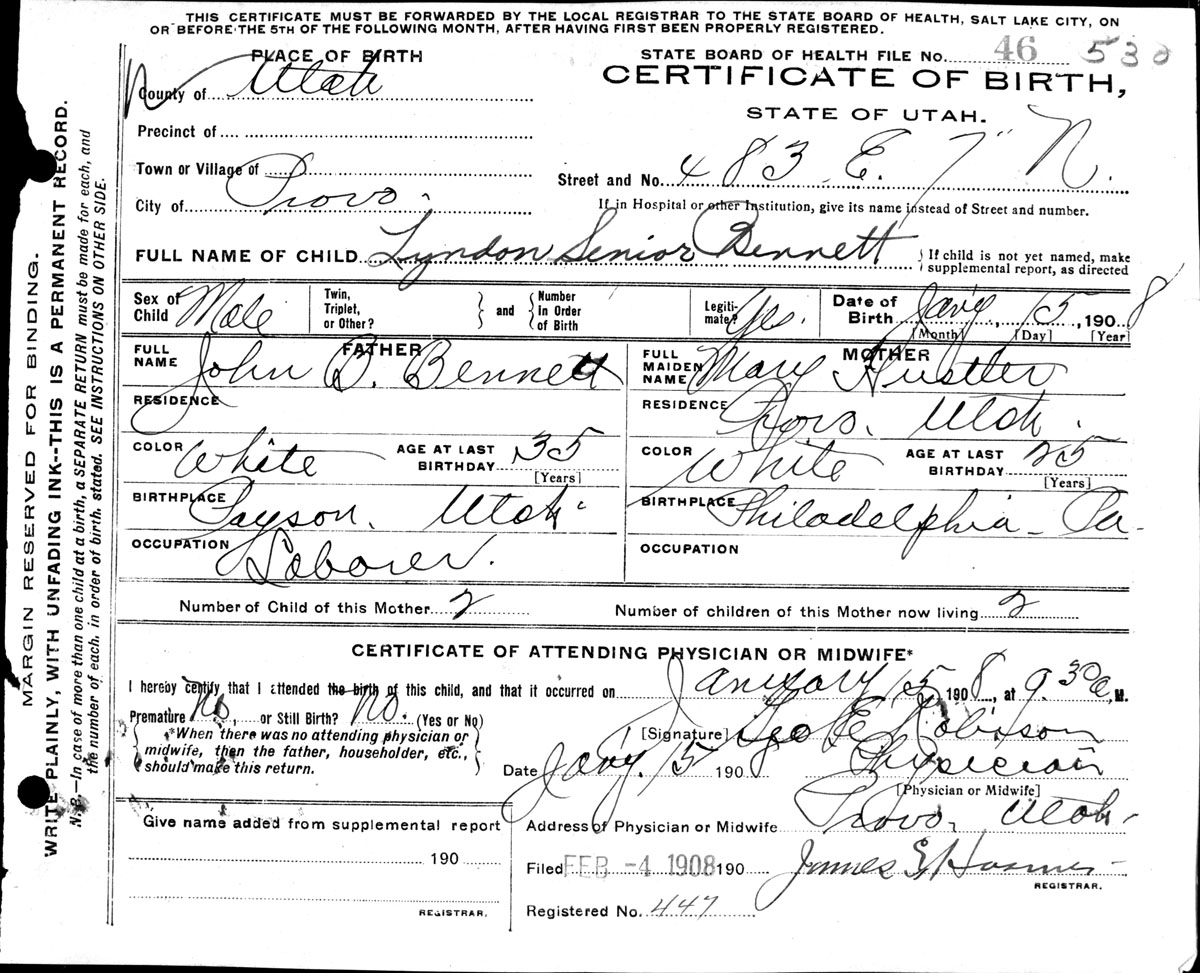 THIS CERTIFICATE MUST BE FORWARDED BY THE LOCAL REGISTRAR TO THE STATE BOARD OF HEALTH, SALT LAKE CITY, ON
OR BEFORE THE 5TH OF THE FOLLOWING MONTH, AFTER HAVING FIRST BEEN PROPERLY REGISTERED.
PLACE OF BIRTH
STATE BOARD OF HEALTH FILE No. 46 530
County of Utah
CERTIFICATE OF BIRTH,
STATE OF UTAH.
Precinct of
Town or Village of
Street and No. 483 E. 7" N.
City of Provo.
If in Hospital or other Institution, give its name instead of Street and number.
FULL NAME OF CHILD Lyndon Senior Bennett
If child is not yet named, make
supplemental report, as directed
Sex of Child Male Twin, Triplet, or Other? and Number In Order of Birth Legiti- mate? Yes. Date of Birth Jany 15, 1908
[Month] [Day] [Year]
FATHER
FULL NAME John B. Bennett
MOTHER
FULL MAIDEN NAME Mary Hustler
RESIDENCE
RESIDENCE Provo. Utah.
COLOR White AGE AT LAST BIRTHDAY 35 [Years]
COLOR White AGE AT LAST BIRTHDAY 25 [Years]
BIRTHPLACE Payson. Utah.
BIRTHPLACE Philadelphia Pa-
OCCUPATION Laborer.
OCCUPATION
Number of Child of this Mother 2 Number of children of this Mother now living 2
CERTIFICATE OF ATTENDING PHYSICIAN OR MIDWIFE*
I hereby certify that I attended the birth of this child, and that it occurred on January 15 1908, at 9 30 a, M.
Premature No, or Still Birth? No. (Yes or No)
*When there was no attending physician or
midwife, then the father, householder, etc.,
should make this return.
[Signature] Geo E Robison
Date Jany. 15 190 Physician
[Physician or Midwife]
Give name added from supplemental report
190
REGISTRAR.
Address of Physician or Midwife Provo, Utah-
Filed FEB -4 1908 190 James E Hosmer
REGISTRAR.
Registered No. 447
MARGIN RESERVED FOR BINDING.
WRITE PLAINLY, WITH UNFADING INK--THIS IS A PERMANENT RECORD.
N. B.—In case of more than one child at a birth, a SEPARATE RETURN must be made for each, and
the number of each, in order of birth, stated. SEE INSTRUCTIONS ON OTHER SIDE.